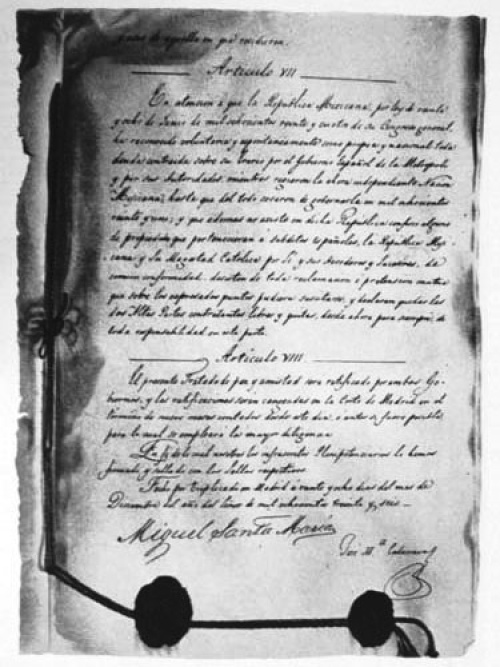 Articulo VII
En atencion á que la Republica Mexicana, por ley de veinte
y ocho de Junio de mil ochocientos veinte y cuatro de su Congreso general,
ha reconocido voluntaria y espontaneamente como propia y nacional toda
deuda contraida sobre su Erario por el Gobierno Español de la Metropoli
y por sus Autoridades mientras rigieron la ahora independiente Nacion
Mexicana, hasta que del todo cesaron de gobernarla en mil ochocientos
veinte y uno; y que ademas no existe en dicha Republica confisco alguno
de propiedades que pertenecieran a subditos españoles, la Republica Meji-
cana y Su Magestad Catolica por sí y sus herederos y sucesores, de
comun conformidad, desisten de toda reclamacion ó pretension mutua
que sobre los expresados puntos pudiera suscitarse, y declaran quedar las
dos Altas Partes contratantes libres y quitas, desde ahora para siempre, de
toda responsabilidad en esta parte.
Articulo VIII
El presente Tratado de paz y amistad sera ratificado por ambos Go-
biernos, y las ratificaciones seran cangeadas en la Corte de Madrid en el
termino de nueve meses contados desde este dia, ó antes si fuere posible,
para lo cual se empleará la mayor diligencia
En fé de lo cual nosotros los infrascritos Plenipotenciarios lo hemos
firmado y sellado con los sellos respectivos
Fecho por triplicado en Madrid á veinte y ocho dias del mes de
Diciembre del año del Señor de mil ochocientos treinta y seis
Miguel Santa María
José Mª Calatrava